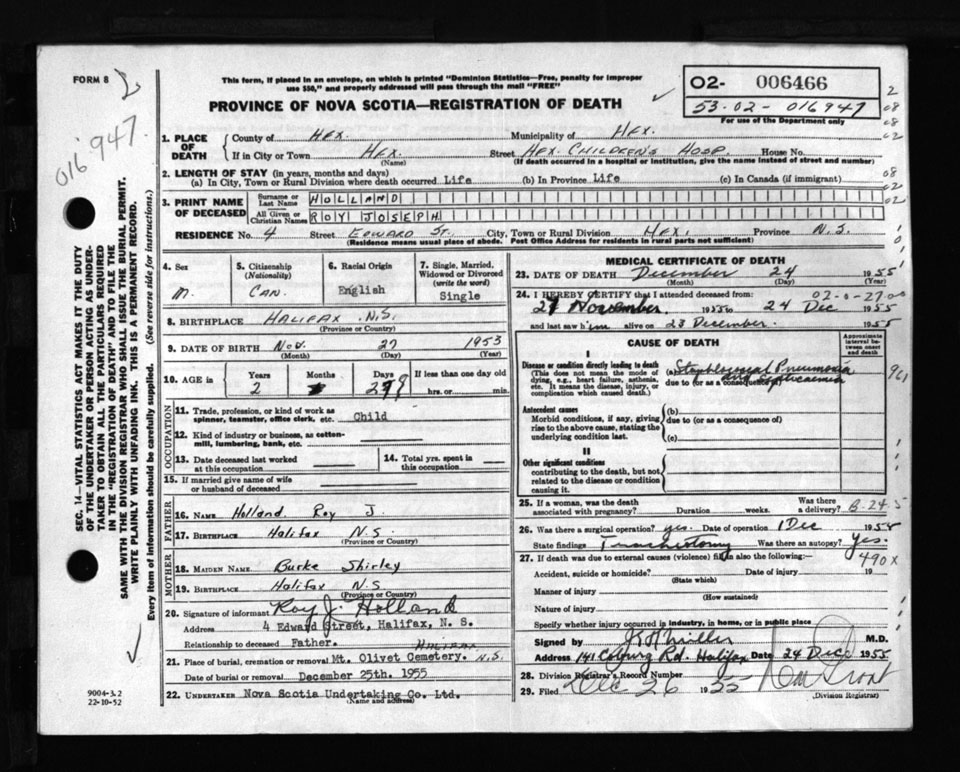 FORM 8
2
This form, if placed in an envelope, on which is printed "Dominion Statistics—Free, penalty for improper
use $50," and properly addressed will pass through the mail "FREE"
PROVINCE OF NOVA SCOTIA—REGISTRATION OF DEATH
02- 006466
53-02-016947
For use of the Department only
016947.
2
08
02
08
02
02
SEC. 14—VITAL STATISTICS ACT MAKES IT THE DUTY
OF THE UNDERTAKER OR PERSON ACTING AS UNDER-
TAKER TO OBTAIN ALL THE PARTICULARS REQUIRED
IN THE "REGISTRATION OF DEATH" AND TO FILE THE
SAME WITH THE DIVISION REGISTRAR WHO SHALL ISSUE THE BURIAL PERMIT.
WRITE PLAINLY WITH UNFADING INK. THIS IS A PERMANENT RECORD.
Every item of information should be carefully supplied. (See reverse side for instructions.)
1. PLACE OF DEATH
County of HFX. Municipality of HFX.
If in City or Town HFX. Street HFX. CHILDREN'S HOSP. House No.
(Name) (If death occurred in a hospital or institution, give the name instead of street and number)
2. LENGTH OF STAY (in years, months and days)
(a) In City, Town or Rural Division where death occurred Life (b) In Province Life (c) In Canada (if immigrant)
3. PRINT NAME OF DECEASED
Surname or Last Name HOLLAND
All Given or Christian Names ROY JOSEPH
RESIDENCE No. 4 Street EDWARD ST. City, Town or Rural Division HFX. Province N.S.
(Residence means usual place of abode. Post Office Address for residents in rural parts not sufficient)
4. Sex
M.
5. Citizenship
(Nationality)
CAN.
6. Racial Origin
English
7. Single, Married,
Widowed or Divorced
(write the word)
Single
8. BIRTHPLACE HALIFAX N.S.
(Province or Country)
9. DATE OF BIRTH Nov. 27 1953
(Month) (Day) (Year)
10. AGE in
Years Months Days If less than one day old
2 hrs. or min.
OCCUPATION
11. Trade, profession, or kind of work as
spinner, teamster, office clerk, etc. Child
12. Kind of industry or business, as cotton-
mill, lumbering, bank, etc.
13. Date deceased last worked
at this occupation
14. Total yrs. spent in
this occupation
15. If married give name of wife
or husband of deceased
FATHER
16. NAME Holland Roy J
17. BIRTHPLACE Halifax N.S.
(Province or Country)
MOTHER
18. MAIDEN NAME Burke Shirley
19. BIRTHPLACE Halifax N.S
(Province or Country)
20. Signature of informant Roy J. Holland
Address 4 Edward Street, Halifax, N. S.
Relationship to deceased Father.
21. Place of burial, cremation or removal Mt. Olivet Cemetery. HALIFAX N.S.
Date of burial or removal December 25th. 1955
22. UNDERTAKER Nova Scotia Undertaking Co. Ltd.
(Name and address)
9004-3.2
22-10-52
MEDICAL CERTIFICATE OF DEATH
23. DATE OF DEATH December 24 1955
(Month) (Day)
24. I HEREBY CERTIFY that I attended deceased from:
27 November 1955 to 24 Dec 1955
and last saw him alive on 23 December. 1955
CAUSE OF DEATH
Approximate
interval be-
tween onset
and death
I
Disease or condition directly leading to death
(This does not mean the mode of
dying, e.g., heart failure, asthenia,
etc. It means the disease, injury, or
complication which caused death.)
(a) Staphlococcal Pneumonia
due to (or as a consequence of) Septicaemia
Antecedent causes
Morbid conditions, if any, giving
rise to the above cause, stating the
underlying condition last.
(b)
due to (or as a consequence of)
(c)
II
Other significant conditions
contributing to the death, but not
related to the disease or condition
causing it.
25. If a woman, was the death
associated with pregnancy? Duration weeks.
Was there
a delivery?
26. Was there a surgical operation? yes. Date of operation 1 Dec 1955
State findings Tracheotomy Was there an autopsy? Yes.
490X
27. If death was due to external causes (violence) fill in also the following:—
Accident, suicide or homicide? Date of injury 19
(State which)
Manner of injury
(How sustained)
Nature of injury
Specify whether injury occurred in industry, in home, or in public place
Signed by K H Miller M.D.
Address 141 Coburg Rd. Halifax Date 24 Dec 1955
28. Division Registrar's Record Number
29. Filed Dec 26 1955
(Division Registrar)